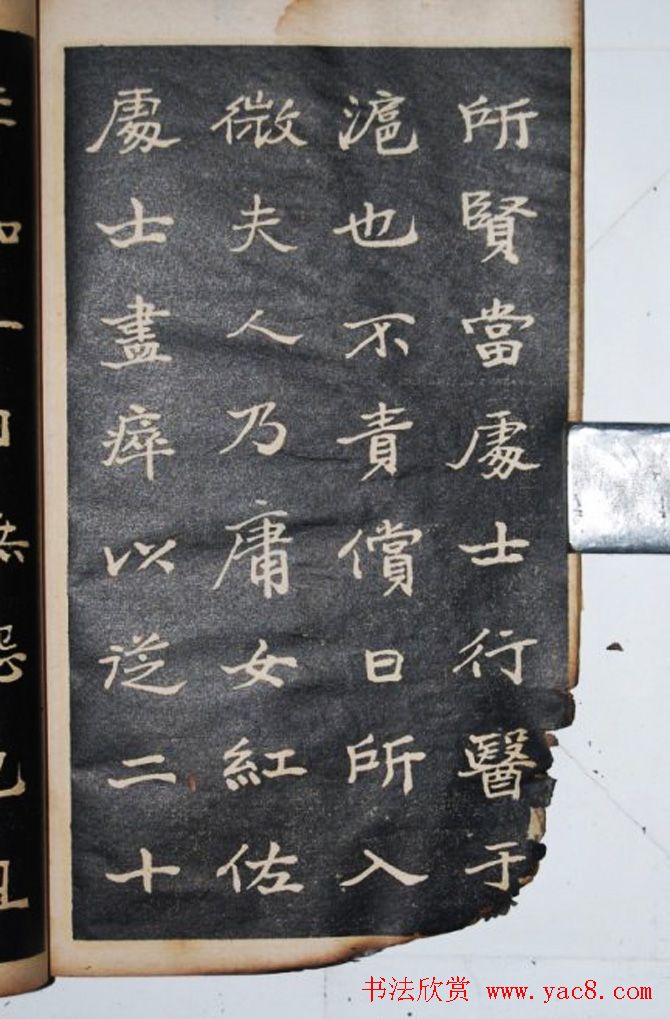 所賢當處士行醫于
滬也不責償日所入
微夫人乃庸女紅佐
處士盡瘁以從二十
书法欣赏 www.yac8.com